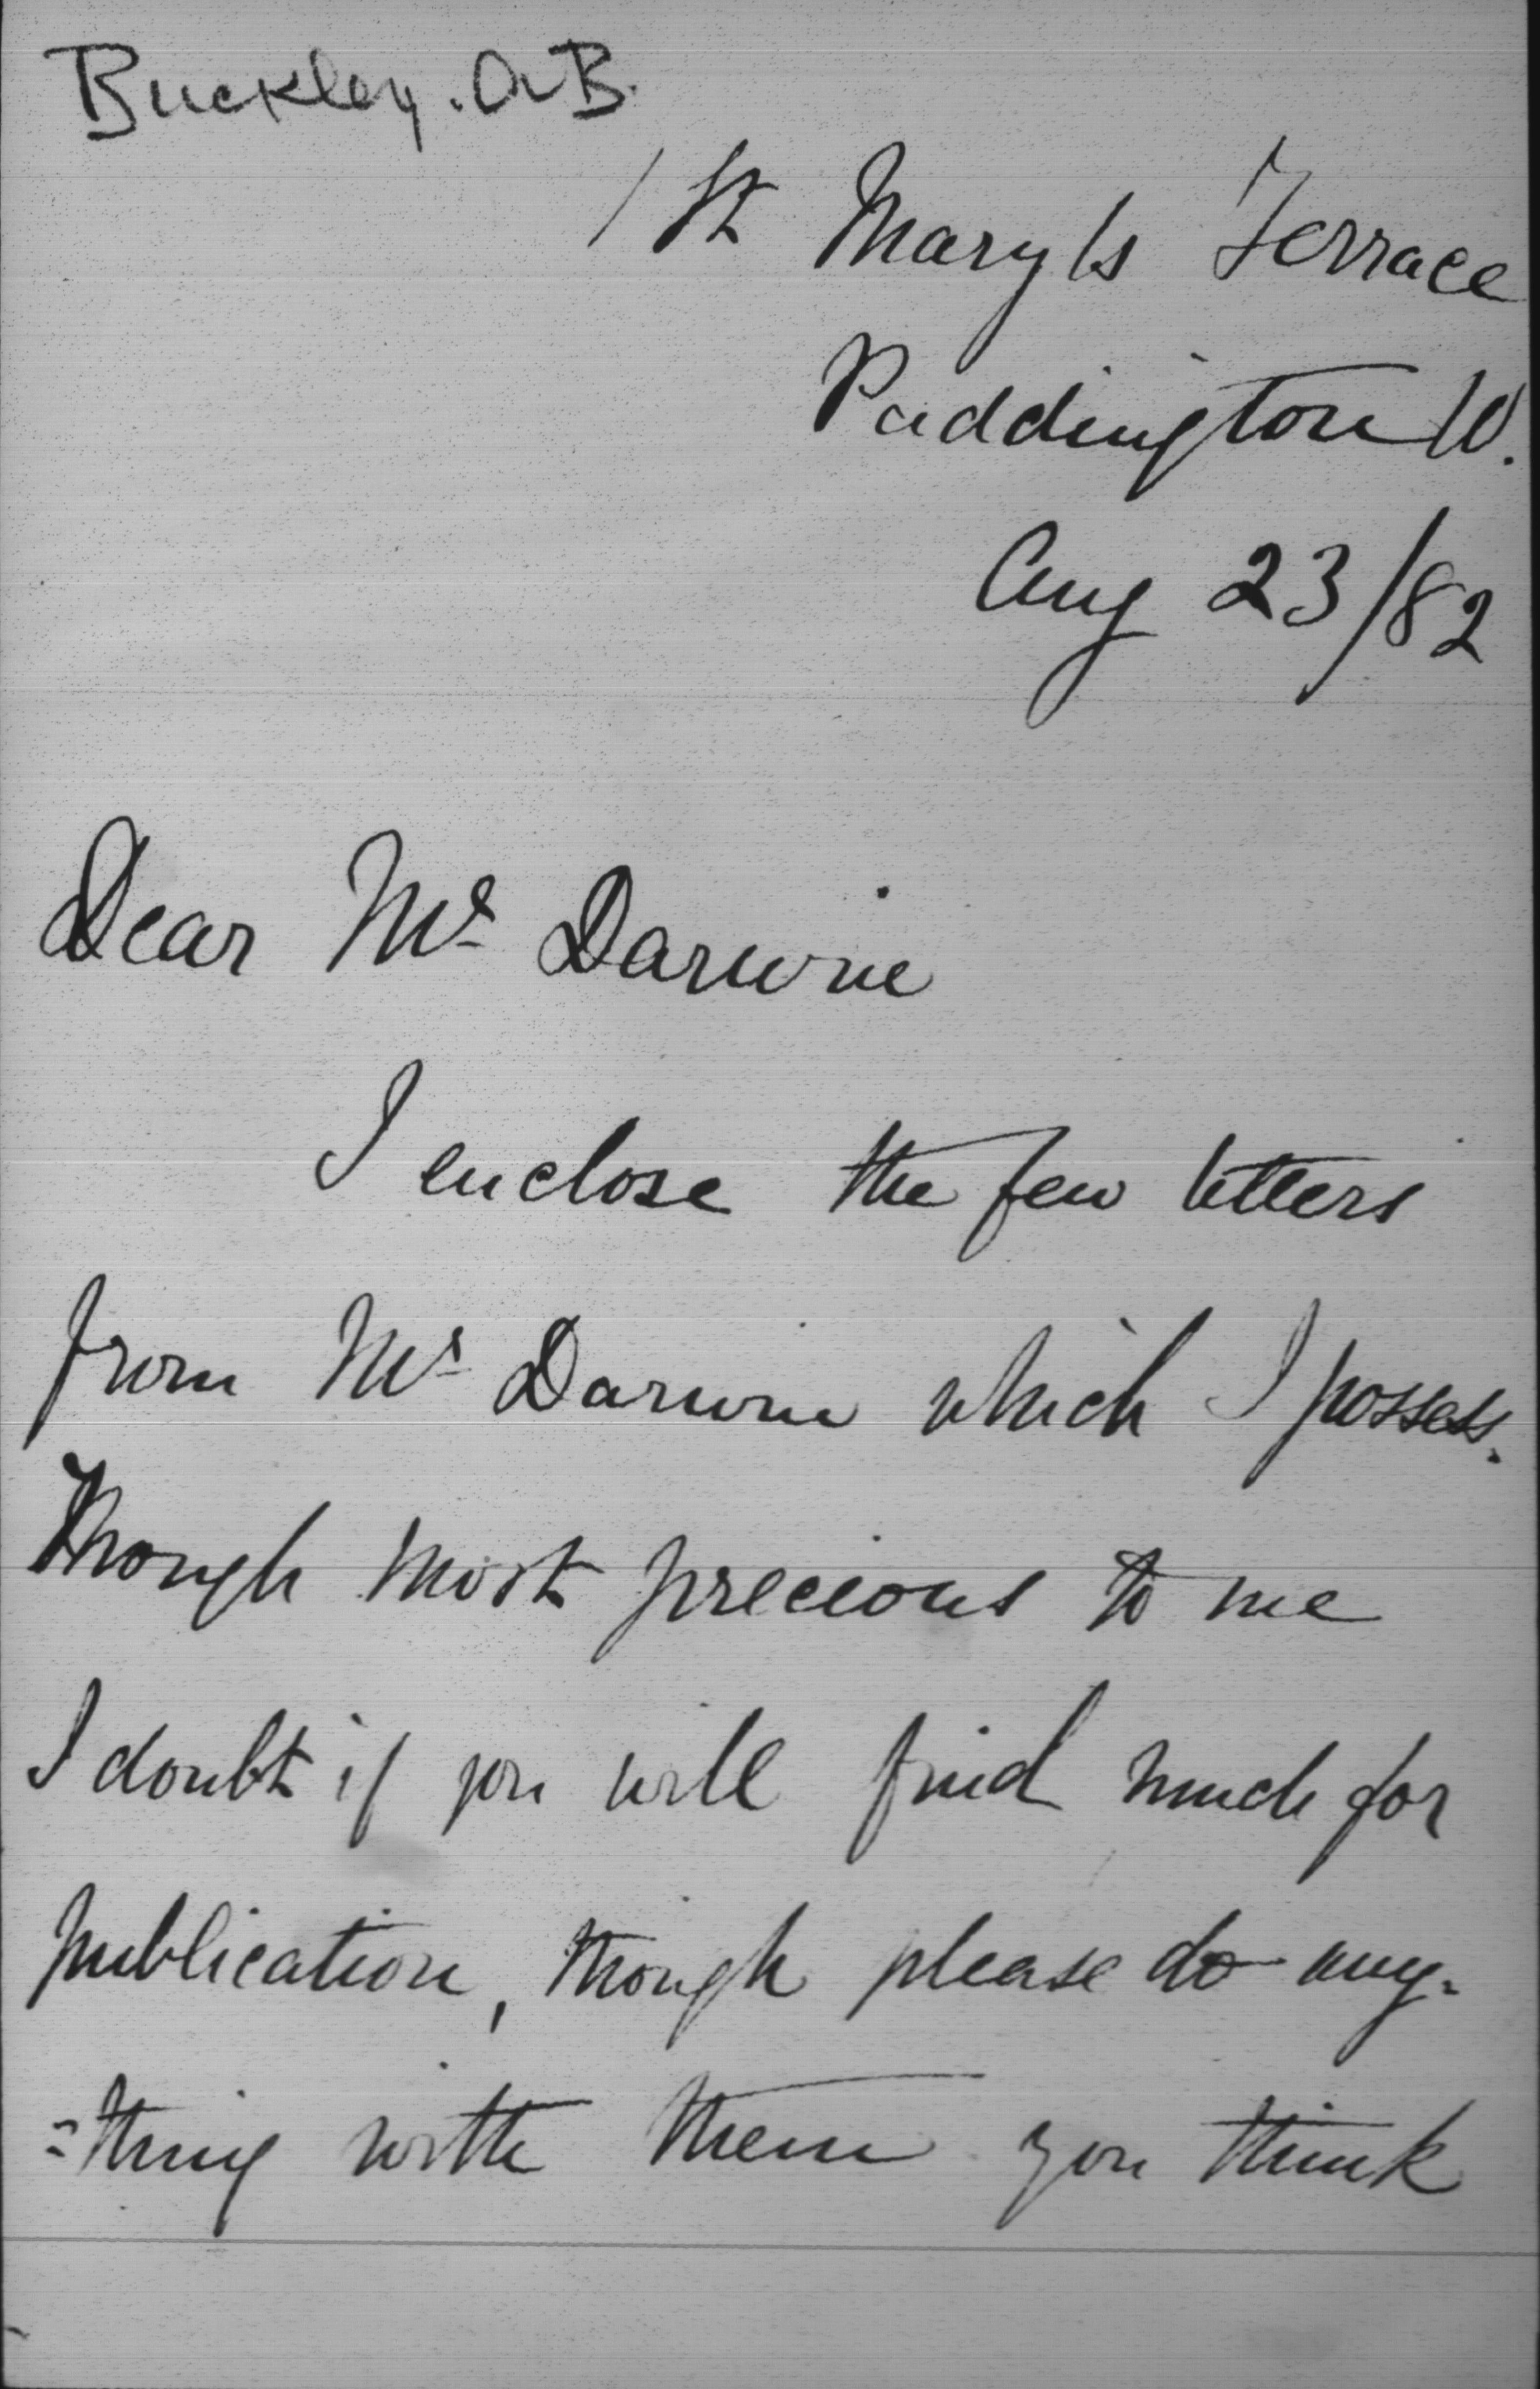 Buckley. A B.
1 St Mary's Terrace
Paddington W.
Aug 23/82
Dear Mr Darwin
I enclose the few letters
from Mr Darwin which I possess.
Though most precious to me
I doubt if you will find much for
publication, though please do any-
=thing with them you think